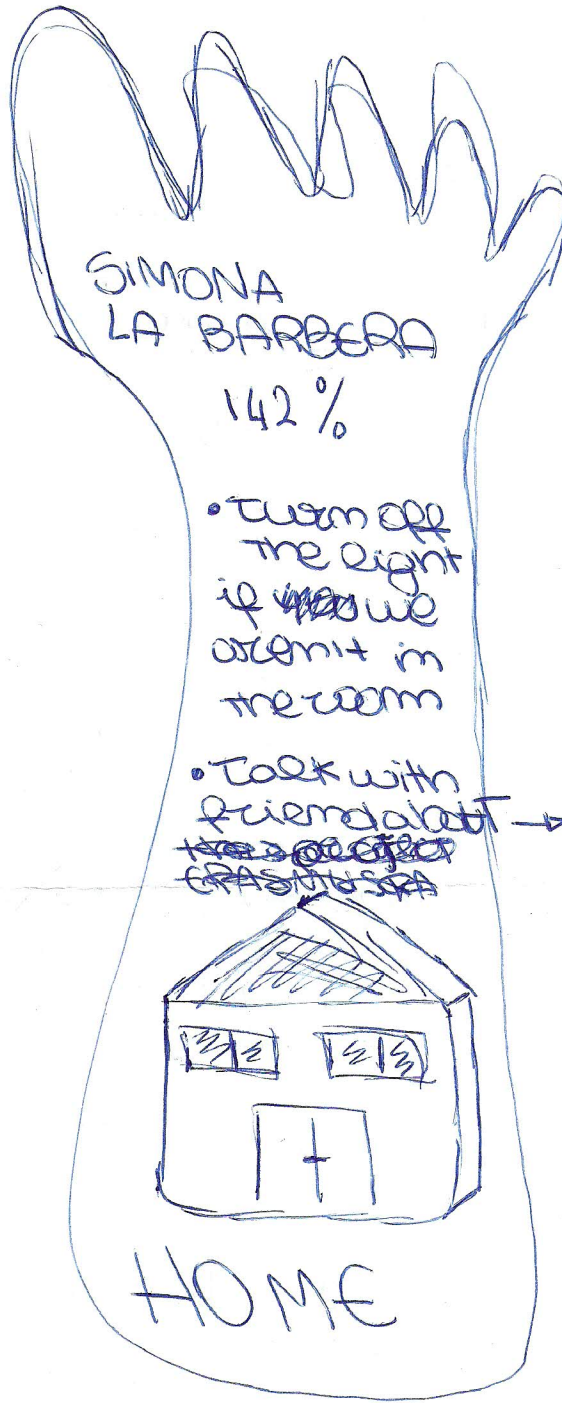 SIMONA
LA BARBERA
142%
• Turn off
the light
if we
aren't in
the room
• Talk with
friend about →
ERASMUS
HOME